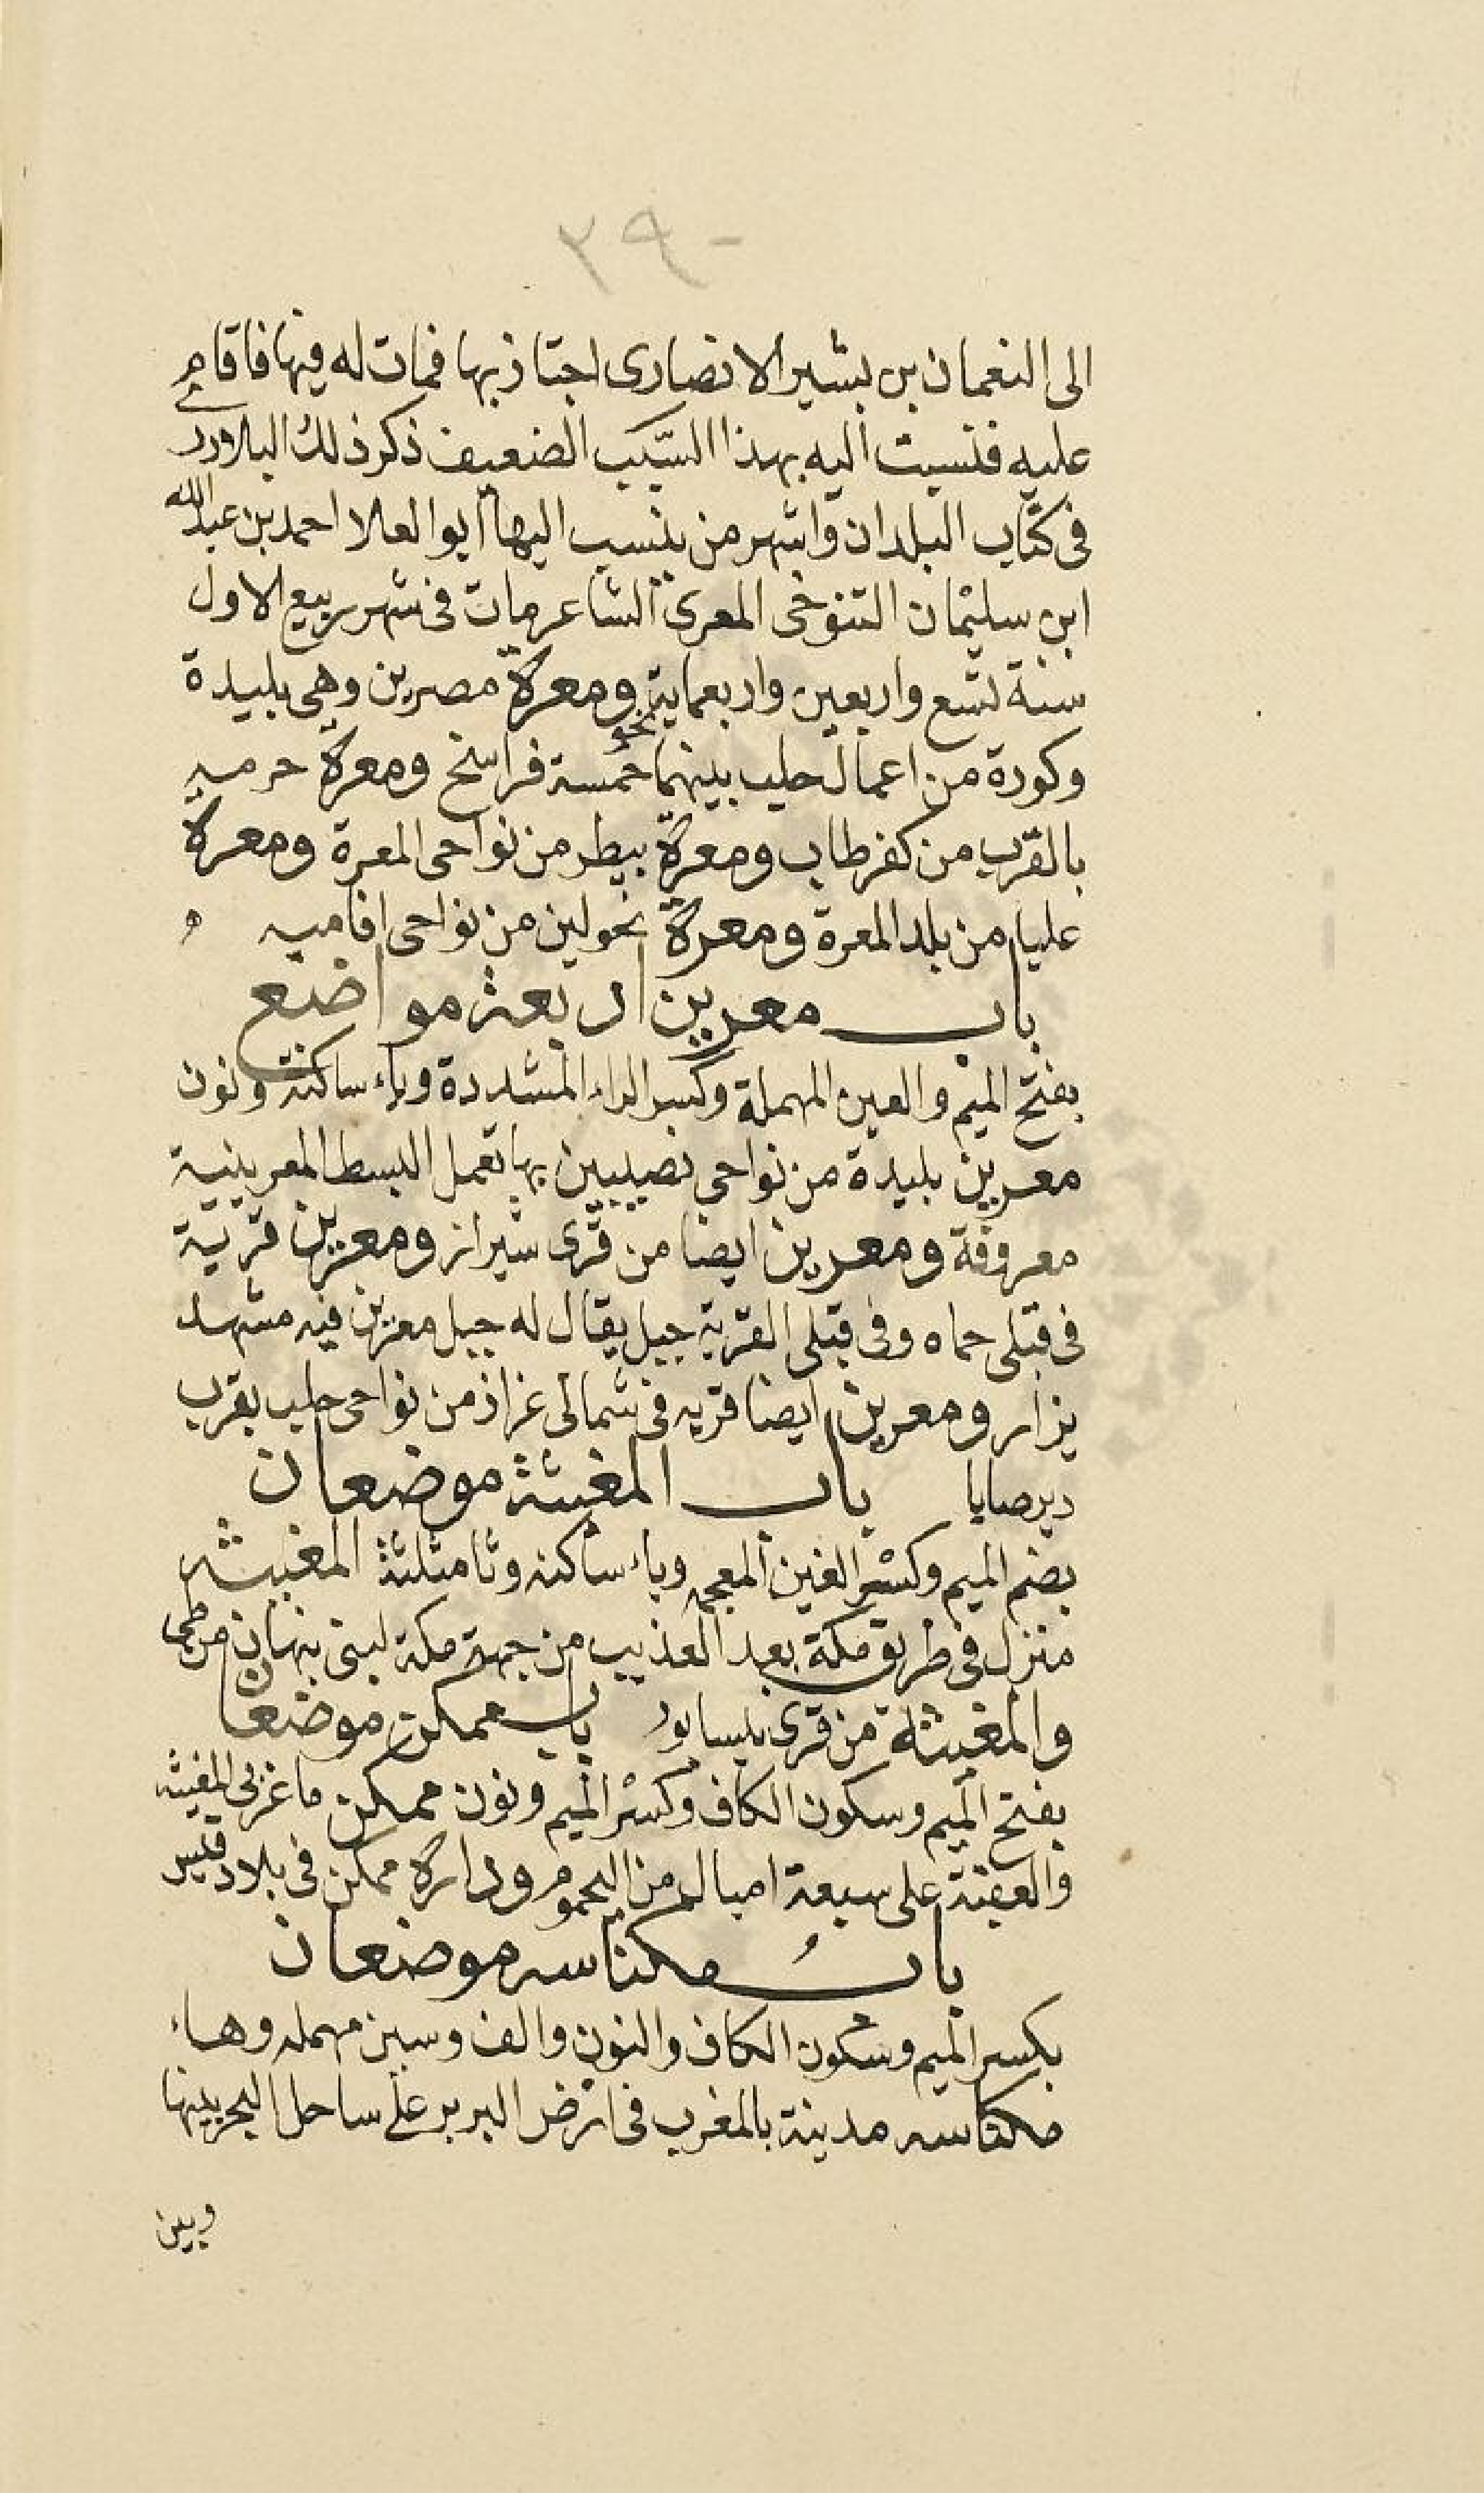 ٣٩٠
الى النعمان بن بشير الانصارى اجتاز بها فمات له فيها فاقام
عليه فنسبت اليه بهذا السبب الضعيف ذكر ذلك البلاذرى
فى كتاب البلدان واشهر من ينسب اليها ابو العلا احمد بن عبد الله
ابن سليمان التنوخى المعرى الشاعر مات فى شهر ربيع الاول
سنة تسع واربعين واربعماية ومعرة مصرين وهى بليدة
وكورة من اعمال حلب بينهما نحو خمسة فراسخ ومعرة حرمه
بالقرب من كفرطاب ومعرة بيطر من نواحى المعرة ومعرة
عليا من بلد المعرة ومعرة نحولين من نواحى افاميه
باب معرين اربعة مواضع
بفتح الميم والعين المهملة وكسر الراء المشددة وياء ساكنة ونون
معرين بليدة من نواحى نصيبين بها تعمل البسط المعرينية
معروفة ومعرين ايضا من قرى شيراز ومعرين قرية
فى قبلى حماه وفى قبلى القرية جبل يقال له جبل معرين فيه مشهد
يزار ومعرين ايضا قريه فى شمالى عزاز من نواحى حلب بقرب
ديرصايا باب المغيثة موضعان
بضم الميم وكسر الغين المعجمه وياء ساكنه وثا مثلثة المغيثه
منزل فى طريق مكة بعد العذيب من جهة مكة لبنى نبهان من طى
والمغيثة من قرى نيسابور باب ممكن موضعان
بفتح الميم وسكون الكاف وكسر الميم ونون ممكن ما غربى المغيثه
والعقبة على سبعة اميال من اليحموم ودارة ممكن فى بلاد قيس
باب مكناسه موضعان
بكسر الميم وسكون الكاف والنون والف وسين مهمله وهاء
مكناسه مدينة بالمغرب فى ارض البربر على ساحل البحر بينها
وبين